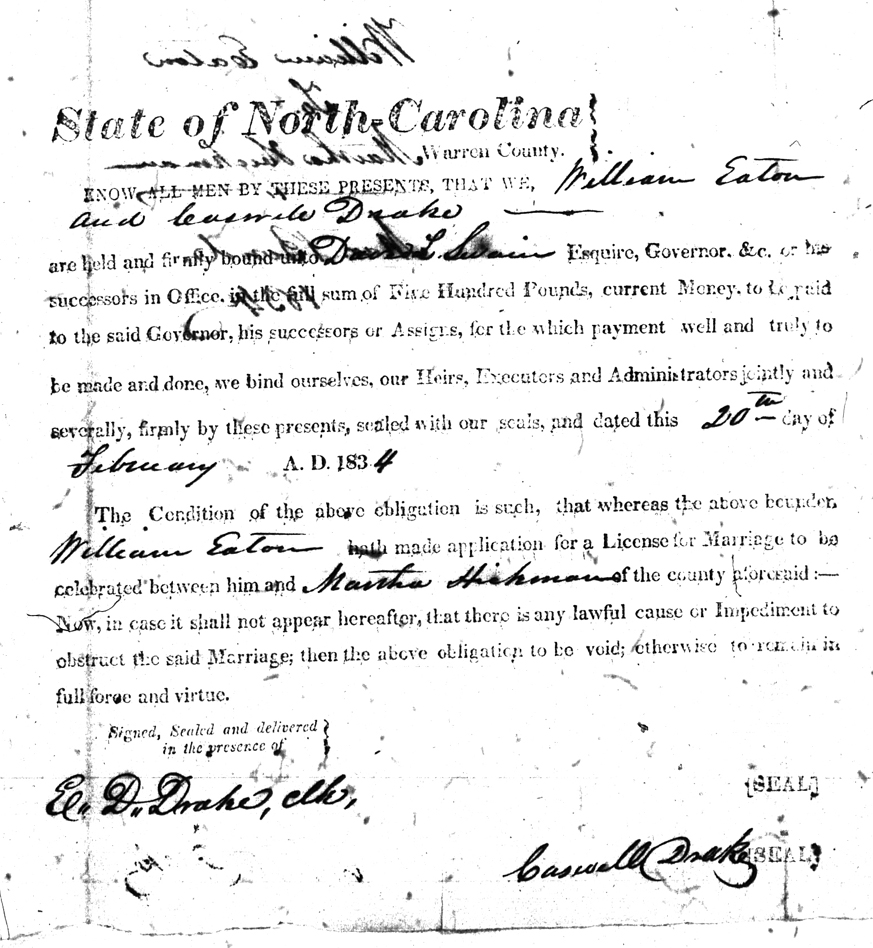 State of North-Carolina
Warren County.
KNOW ALL MEN BY THESE PRESENTS, THAT WE, William Eaton
and Caswell Drake
are held and firmly bound unto David L. Swain Esquire, Governor. &c. or his
successors in Office, in the full sum of Five Hundred Pounds, current Money, to be paid
to the said Governor, his successors or Assigns, for the which payment well and truly to
be made and done, we bind ourselves, our Heirs, Executors and Administrators jointly and
severally, firmly by these presents, sealed with our seals, and dated this 20th day of
February A. D. 1834
The Condition of the above obligation is such, that whereas the above bounden
William Eaton hath made application for a License for Marriage to be
celebrated between him and Martha Hickman of the county aforesaid:—
Now, in case it shall not appear hereafter, that there is any lawful cause or Impediment to
obstruct the said Marriage; then the above obligation to be void; otherwise to remain in
full force and virtue.
Signed, Sealed and delivered
in the presence of
{SEAL}
El. D. Drake, clk,
Caswell Drake {SEAL}